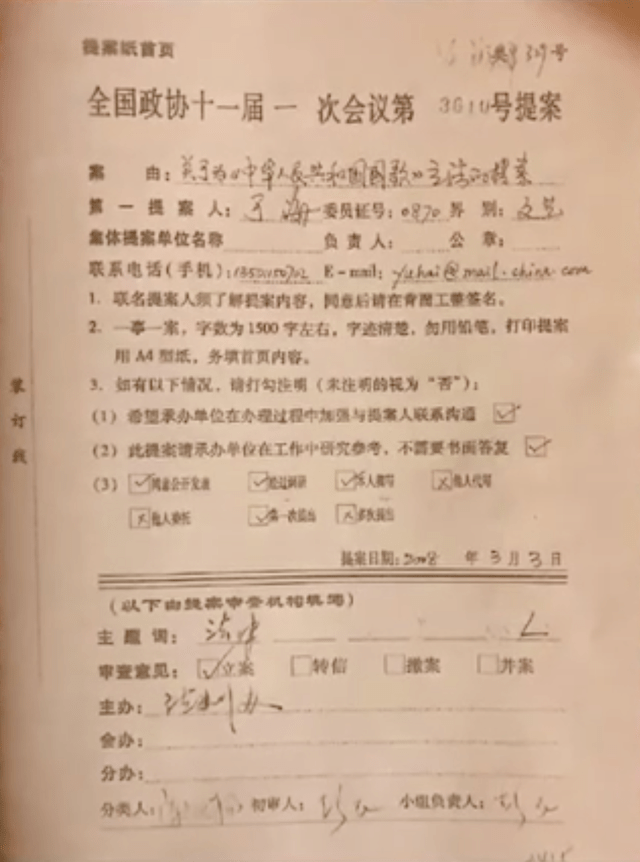 提案纸首页
号
全国政协十一届一次会议第3610号提案
案 由：关于为《中华人民共和国国歌》立法的提案
第一提案人：于海 委员证号：0870 界别：文艺
集体提案单位名称 负责人： 公章：
联系电话（手机）： E-mail：yuhai@mail.china.com
1. 联名提案人须了解提案内容，同意后请在背面工整签名。
2. 一事一案，字数为1500字左右，字迹清楚，勿用铅笔，打印提案
用A4型纸，务填首页内容。
3. 如有以下情况，请打勾注明（未注明的视为“否”）：
（1）希望承办单位在办理过程中加强与提案人联系沟通 ☑
（2）此提案请承办单位在工作中研究参考，不需要书面答复 ☑
（3）☑同意公开发表 ☑经过调研 ☑本人撰写 ☒他人代写
☒他人委托 ☑第一次提出 ☒多次提出
提案日期：2008 年 3 月 3 日
（以下由提案审查机构填写）
主题词：法律
审查意见：☑立案 □转信 □撤案 □并案
主办：法制办
会办：
分办：
分类人： 初审人： 小组负责人：
装订线